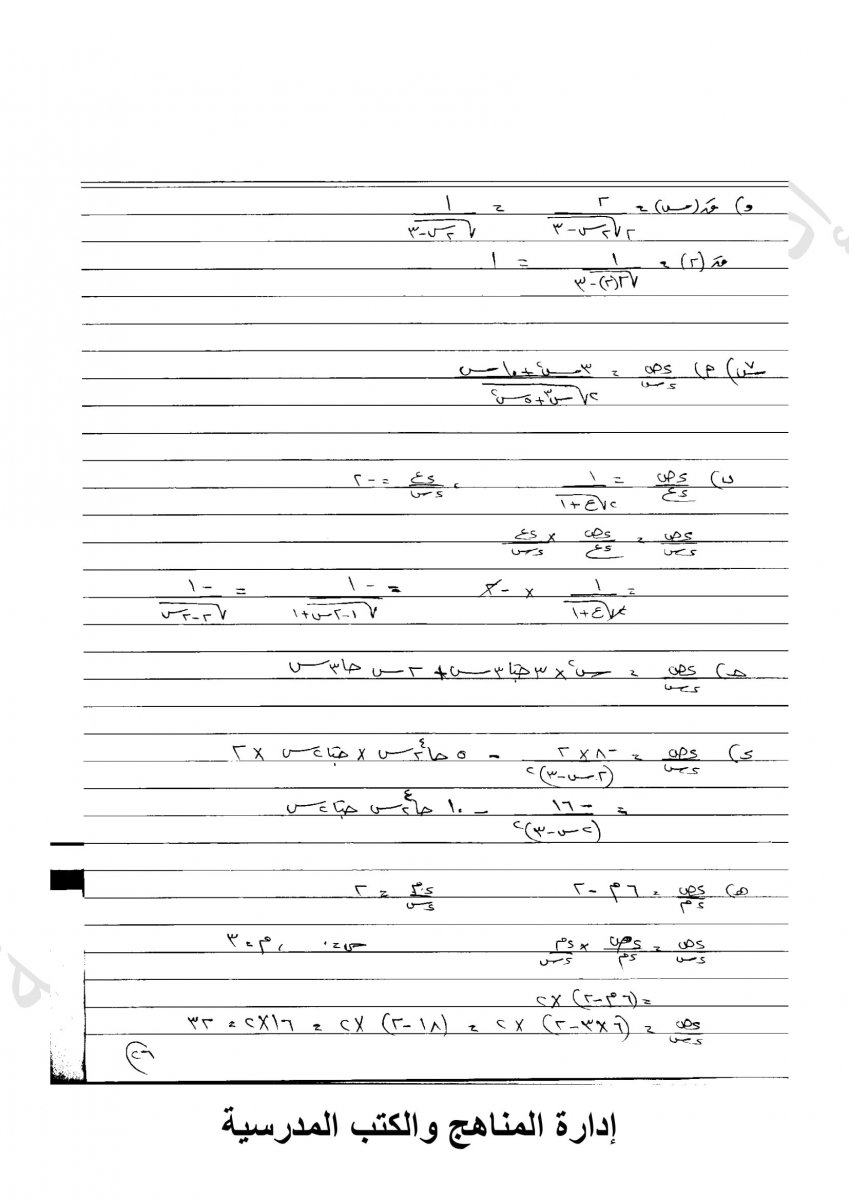 و) قَ(س) = ٢ / ٢√(٢س-٣) = ١ / √(٢س-٣)
قَ(٢) = ١ / √(٢(٢)-٣) = ١
س٧) م) ءص/ءس = ٣س٢+١٠س / ٢√(س٣+٥س٢)
ب) ءص/ءع = ١ / ٢√(ع+١) ، ءع/ءس = -٢
ءص/ءس = ءص/ءع × ءع/ءس
= ١ / ٢√(ع+١) × -٢ = -١ / √(١-٢س+١) = -١ / √(٢-٢س)
جـ) ءص/ءس = س٢ × ٣ جتا٣س + ٢س جا٣س
د) ءص/ءس = -٨×٢ / (٢س-٣)٢ - ٥ جا٤٢س × جتا٢س × ٢
= -١٦ / (٢س-٣)٢ - ١٠ جا٤٢س جتا٢س
هـ) ءص/ءم = ٦م-٢ ءم/ءس = ٢
ءص/ءس = ءص/ءم × ءم/ءس س=٠ ، م=٣
= (٦م-٢)×٢
ءص/ءس = (٦×٣-٢)×٢ = (١٨-٢)×٢ = ١٦×٢ = ٣٢
٢٦
إدارة المناهج والكتب المدرسية